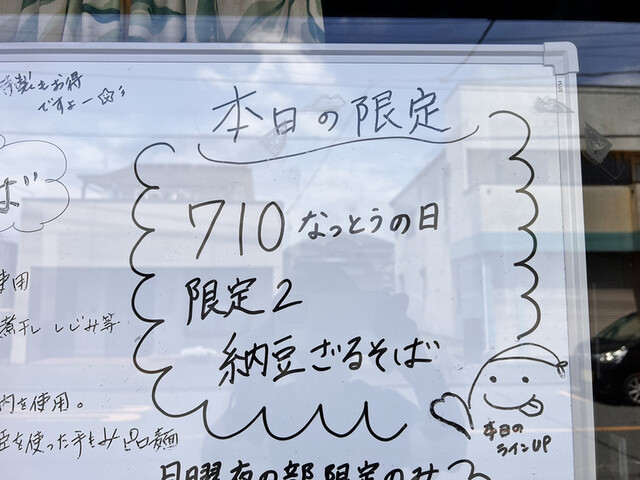 お得
ですよー☆
本日の限定
710 なっとうの日
限定2
納豆ざるそば
ば
使用
煮干し しじみ等
を使用。
を使った手もみ
麺
本日の
ラインUP
日曜夜の部限定のみ